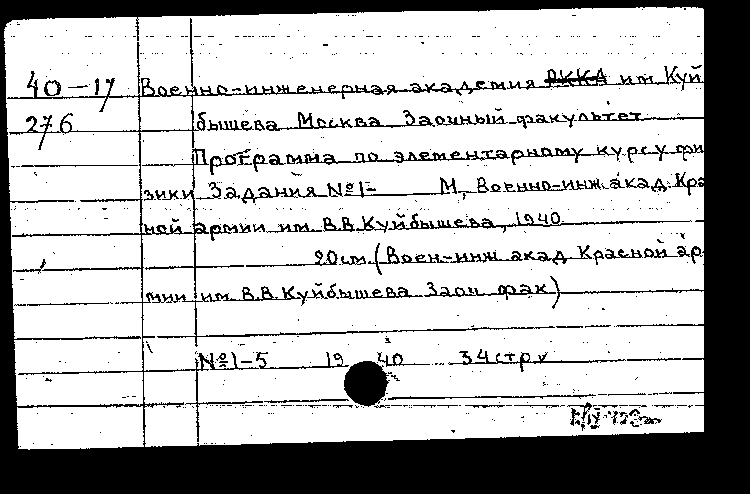 40-17 Военно-инженерная академия РККА им. Куй
276 бышева Москва. Заочный факультет.
Программа по элементарному курсу фи
зики. Задания №1- М., Военно-инж. акад. Кра
ной армии им. В.В. Куйбышева, 1940.
20см. (Воен-инж. акад. Красной ар
мии им. В.В. Куйбышева. Заоч. фак)
№1-5 19 40 34 стр.